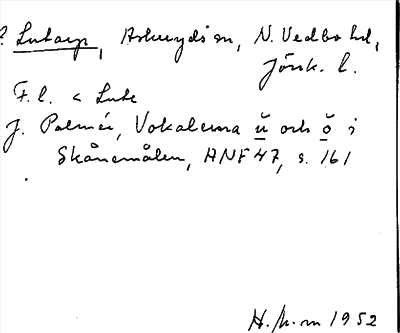 ? Lutarp, Askeryds sn, N. Vedbo hd,
Jönk. l.
F. l. < Lute
J. Palmér, Vokalerna ŭ och ŏ i
Skånemålen, ANF 47, s. 161
1952